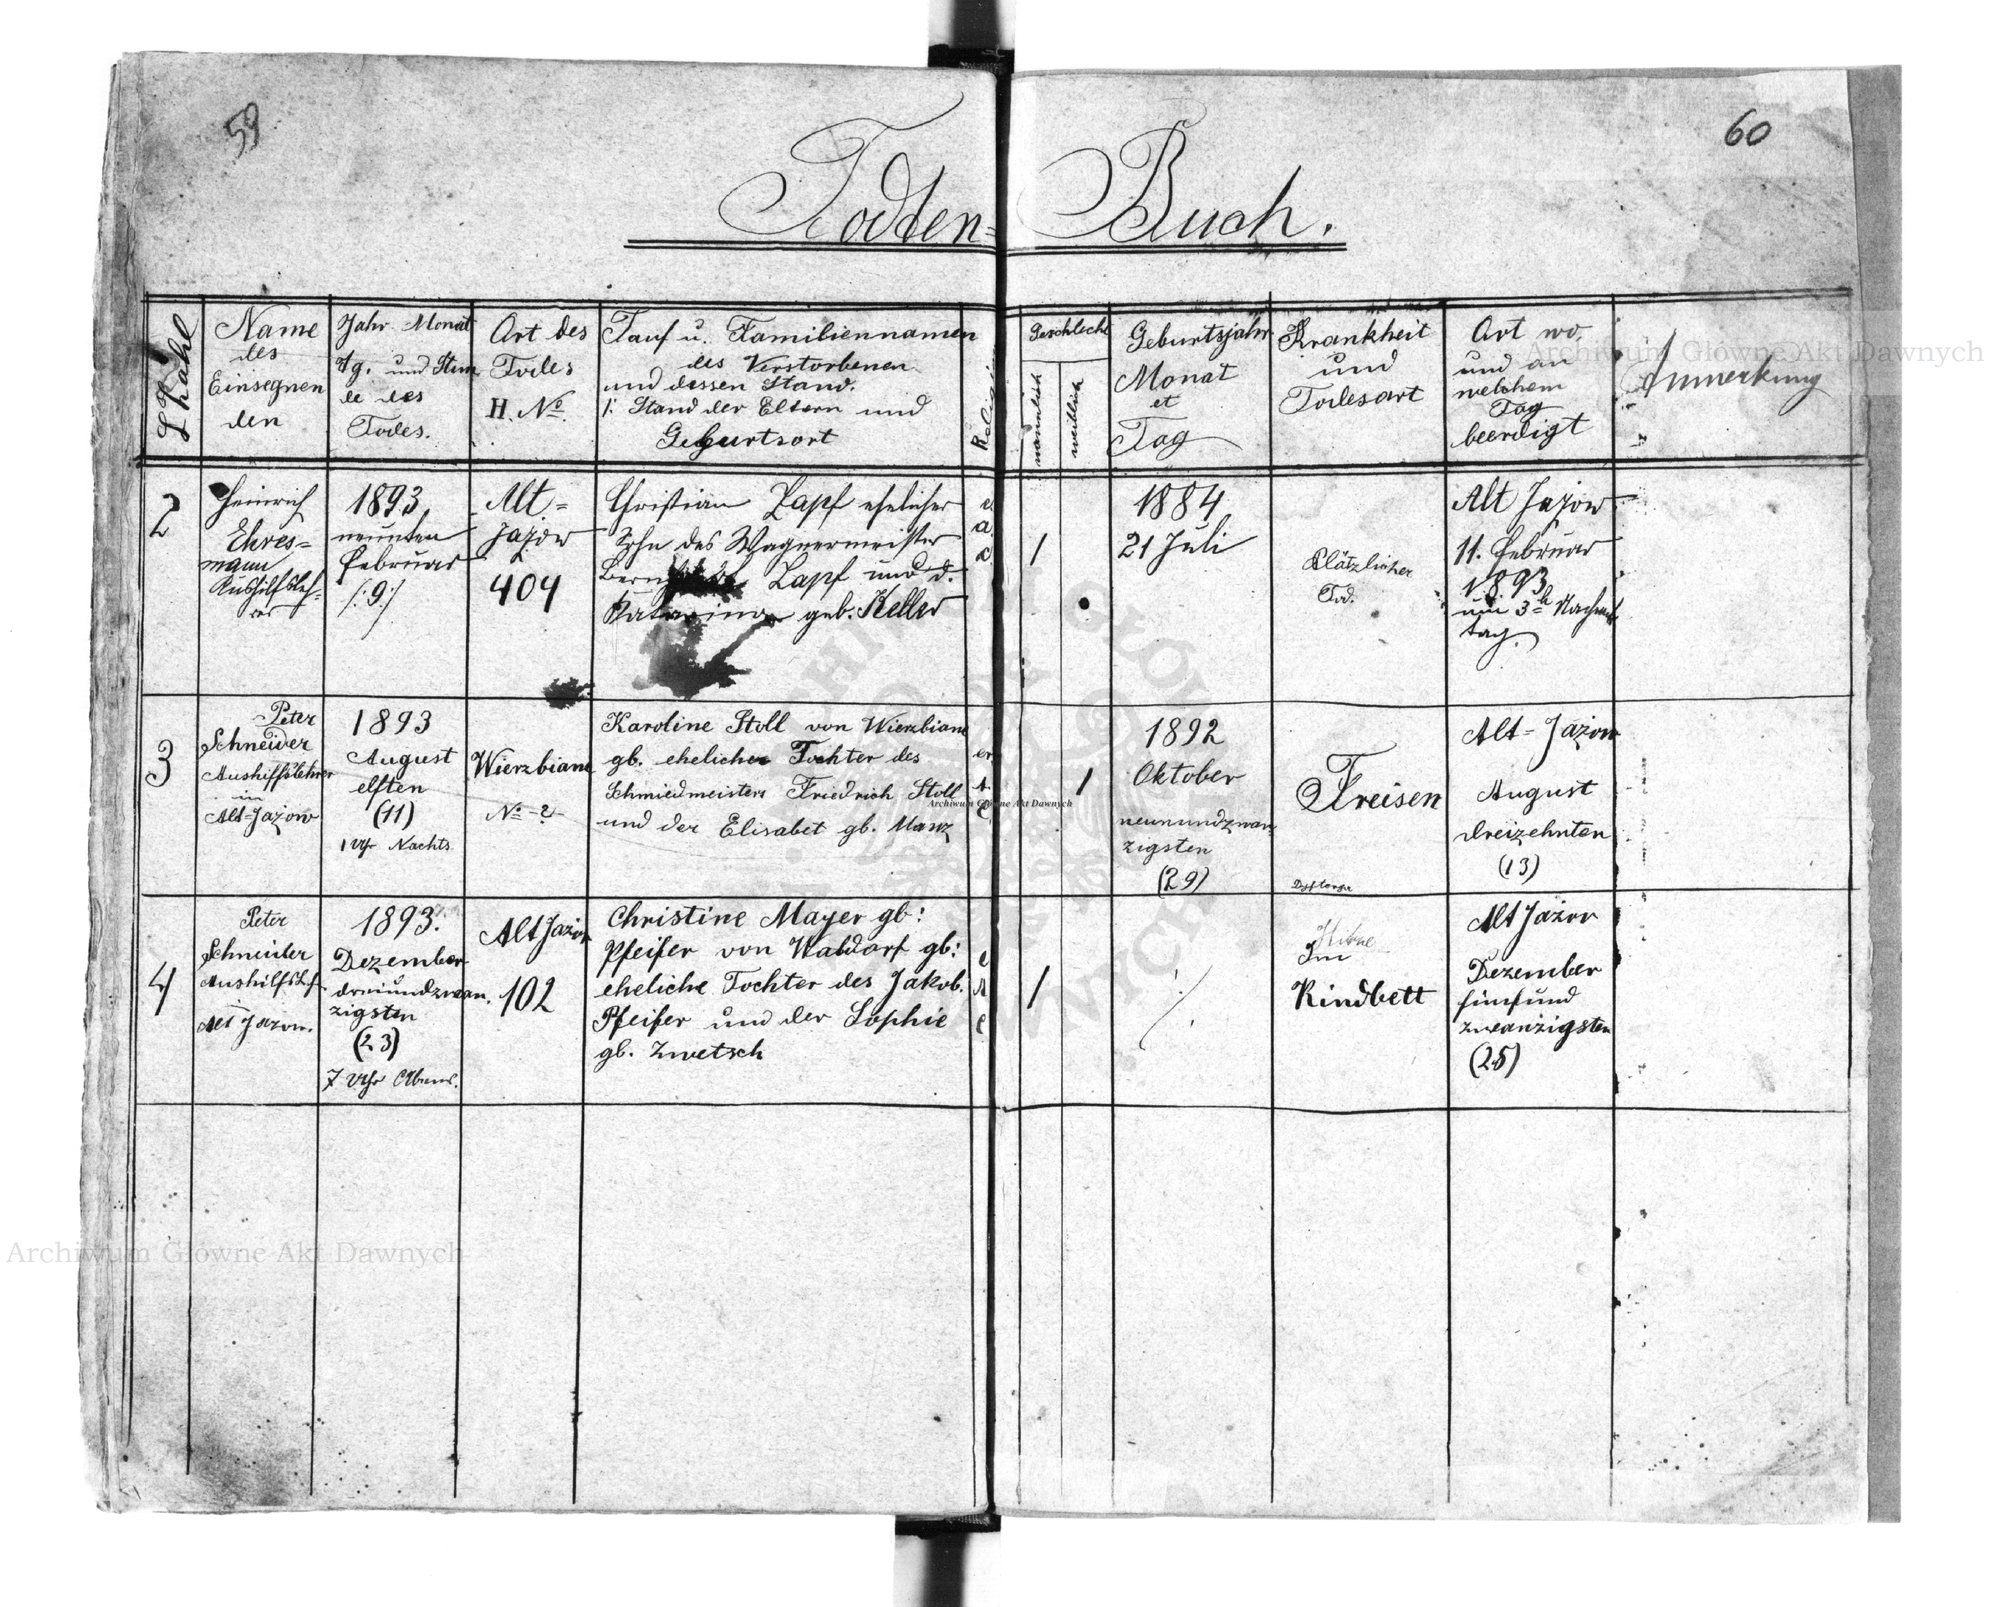 59
60
Todten=
Buch.
LZahl
Name
des
Einsegnen
den
Jahr Monat
Tg. und Stun
de des
Todes.
Ort des
Todes
H. No.
Tauf u. Familiennamen
des Verstorbenen
und dessen Stand.
1: Stand der Eltern und
Geburtsort
Religion
Geschlecht
männlich
weiblich
Geburtsjahr
Monat
et
Tag
Krankheit
und
Todesart
Ort wo,
und an
welchem
Tag
beerdigt
Anmerkung
2
Heinrich
Ehres=
mann
Aushilfsleh=
rer
1893
neunten
Februar
/:9:/
Alt=
Jazow
404
Christian Zapf ehelicher
Sohn des Wagnermeister
Zapf und d.
Katarina geb. Keller
1
1884
21 Juli
Plötzlicher
Tod.
Alt Jazow
11. Februar
1893
um 3h Nachmit
tag.
3
Peter
Schneider
Aushilfslehrer
in
Alt-Jazow
1893
August
elften
(11)
1 Uhr Nachts
Wierzbiane
No -2-
Karoline Stoll von Wierzbiane
gb. eheliche Tochter des
Schmiedmeisters Friedrich Stoll
und der Elisabet gb. Manz
1
1892
Oktober
neunundzwan
zigsten
(29)
Freisen
Alt-Jazow
August
dreizehnten
(13)
4
Peter
Schneider
Aushilfsleh
in
Alt Jazow.
1893.
Dezember
dreiundzwan.
zigsten
(23)
7 Uhr Abends.
Alt Jazow
102
Christine Mayer gb:
Pfeifer von Waldorf gb:
eheliche Tochter des Jakob.
Pfeifer und der Sophie
gb. Zwetsch
e
A
C
1
·/.
Im
Kindbett
Alt Jazow
Dezember
fünfund
zwanzigsten
(25)
Archiwum Główne Akt Dawnych
Archiwum Główne Akt Dawnych
Archiwum Główne Akt Dawnych